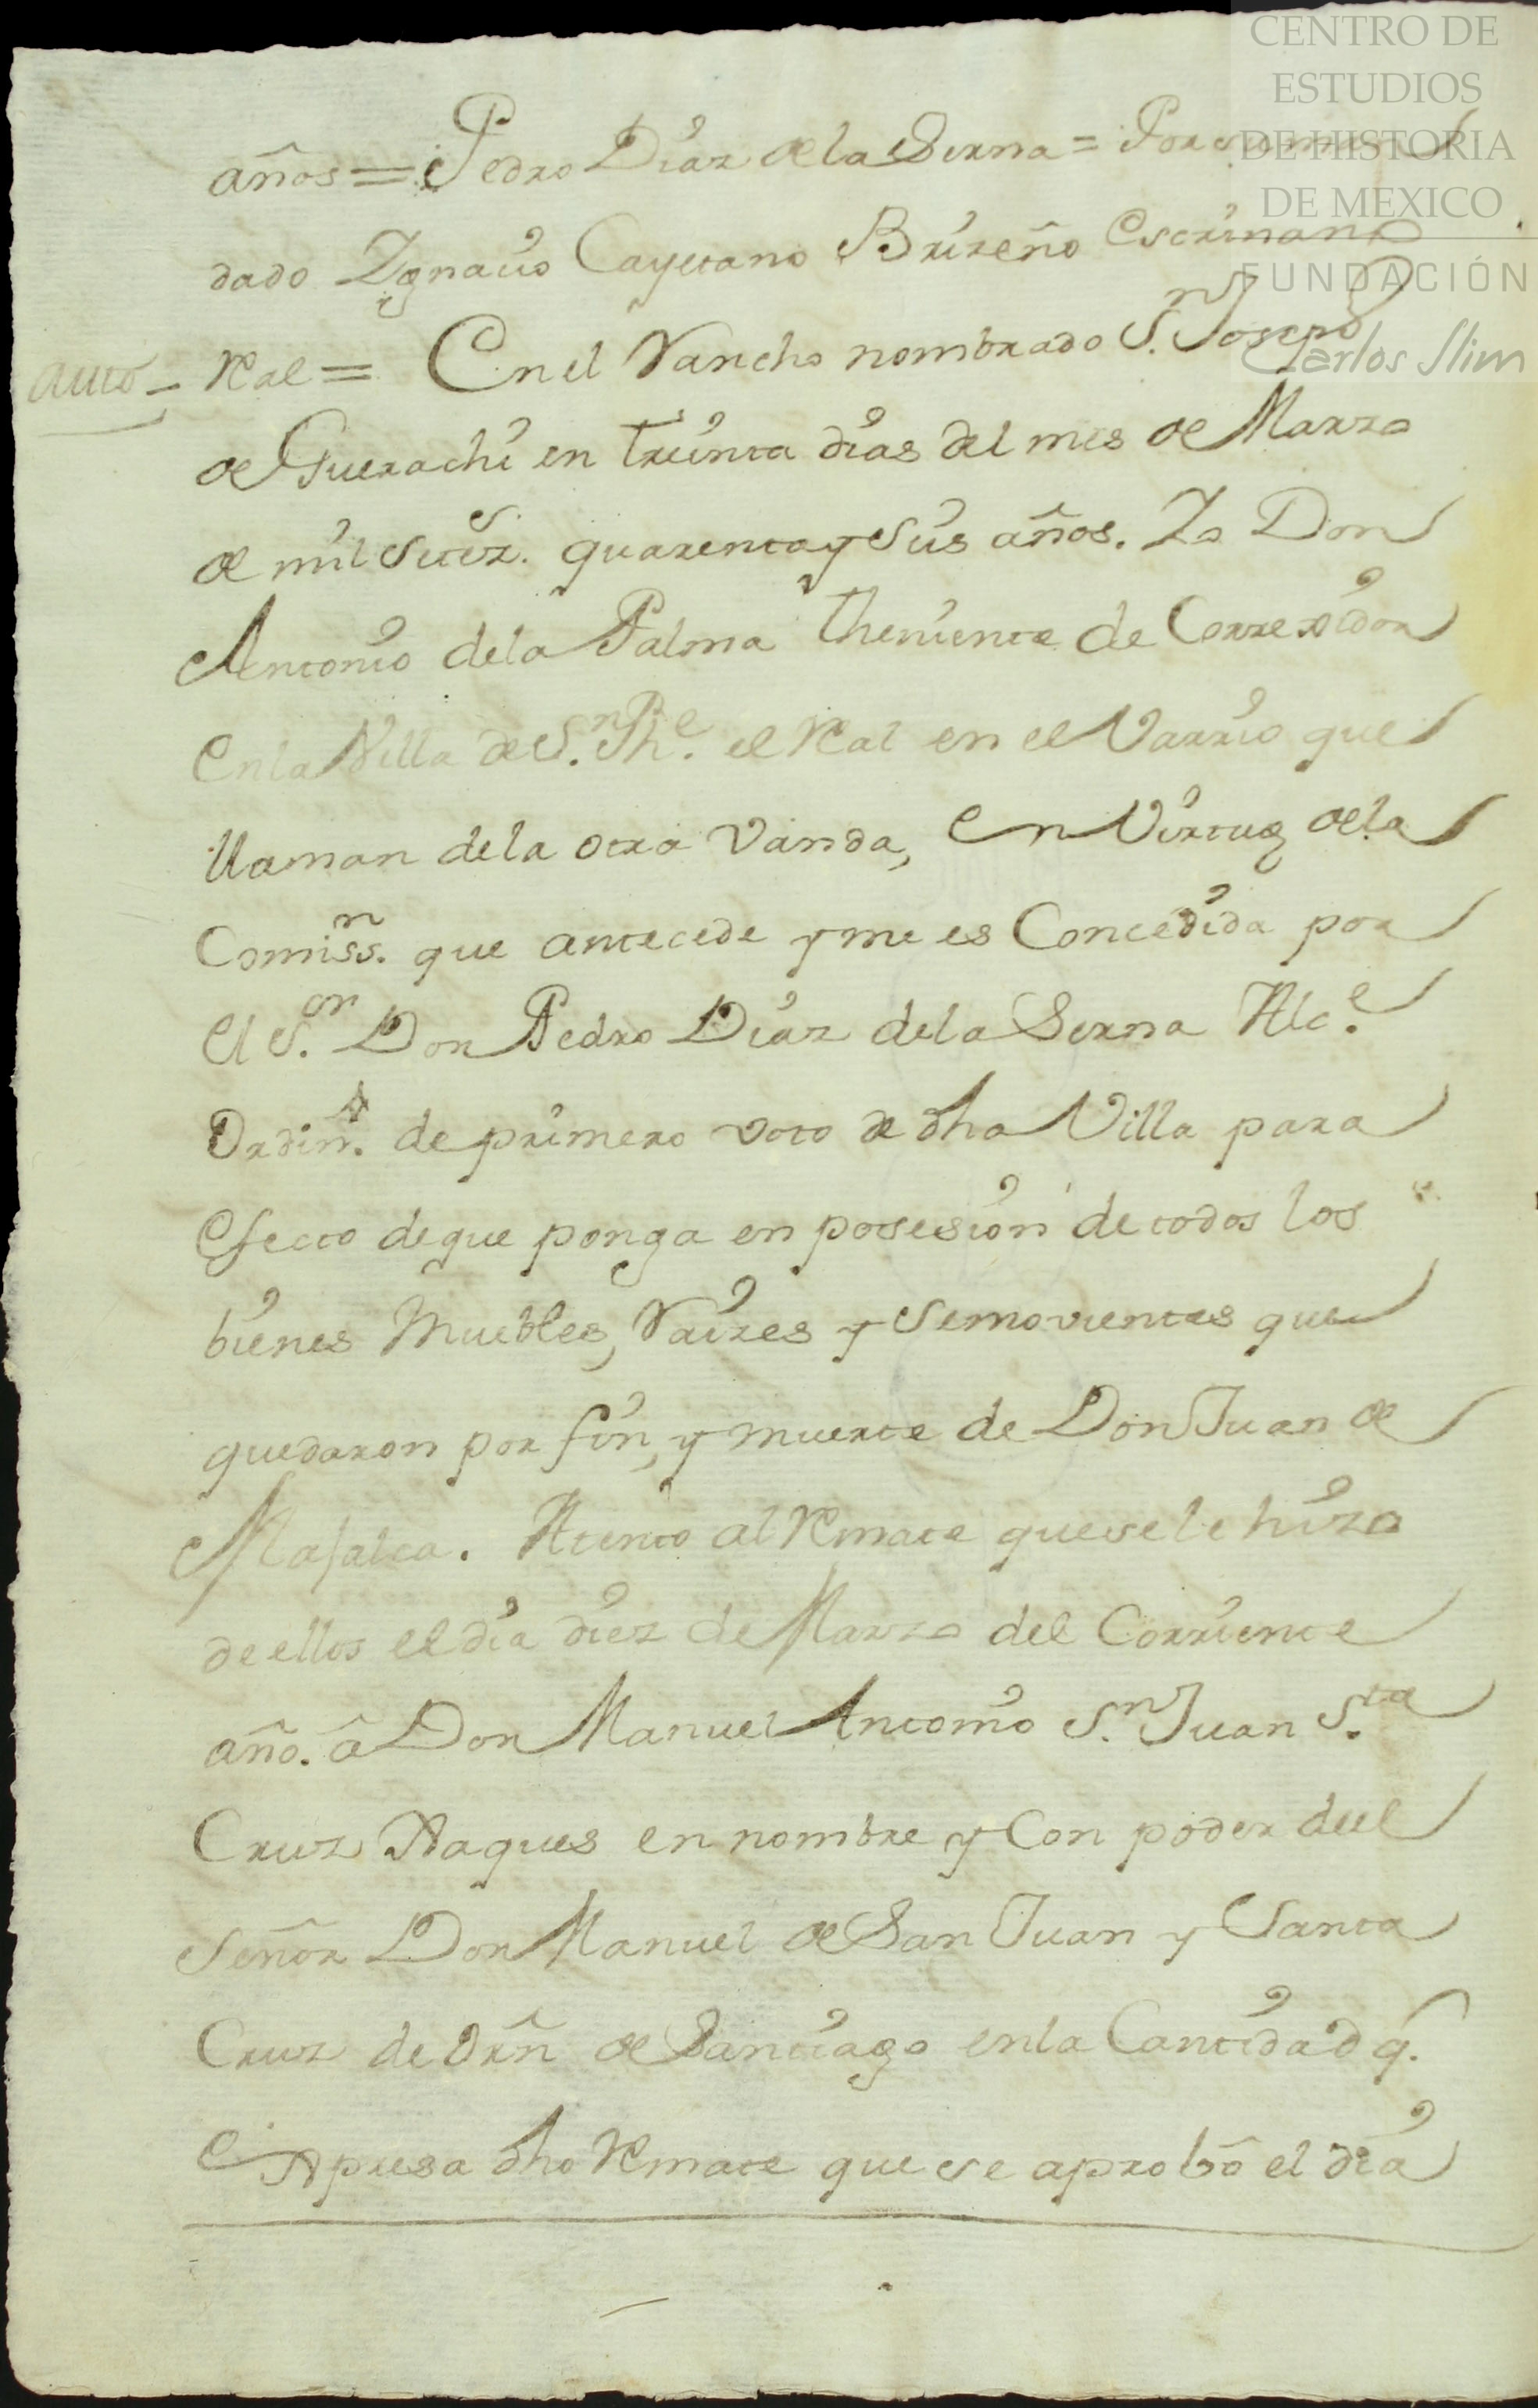 CENTRO DE
ESTUDIOS
DE HISTORIA
DE MEXICO
FUNDACIÓN
Carlos Slim
años = Pedro Diaz de la Serna = Por su man
dado Ygnacio Cayetano Brizeño Escrivano
auto = Real = En el Rancho nombrado S.n Joseph
de Guerachi en treinta dias del mes de Marzo
de mil setez.s quarenta y seis años. Yo Don
Antonio dela Palma Theniente de Correxidor
en la Villa de S.n Phe. el Real en el Varrio que
llaman dela otra vanda, en Virtud dela
Comiss.n que antecede y me es Concedida por
el S.or Don Pedro Diaz dela Serna Alc.e
Ordin.o de primero voto de dha Villa para
efecto deque ponga en posesion de todos los
bienes Muebles, Raizes y Semovientes que
quedaron por fin, y muerte de Don Juan de
Mafalca. Atento al Remate que se le hizo
de ellos el dia diez de Marzo del Corriente
año. â Don Manuel Antonio S.n Juan S.ta
Cruz Xaques en nombre y Con poder deel
Señor Don Manuel de San Juan y Santa
Cruz de Orñ de Santiago en la Cantidad q.
Expresa dho Remate que se aprobô el dia